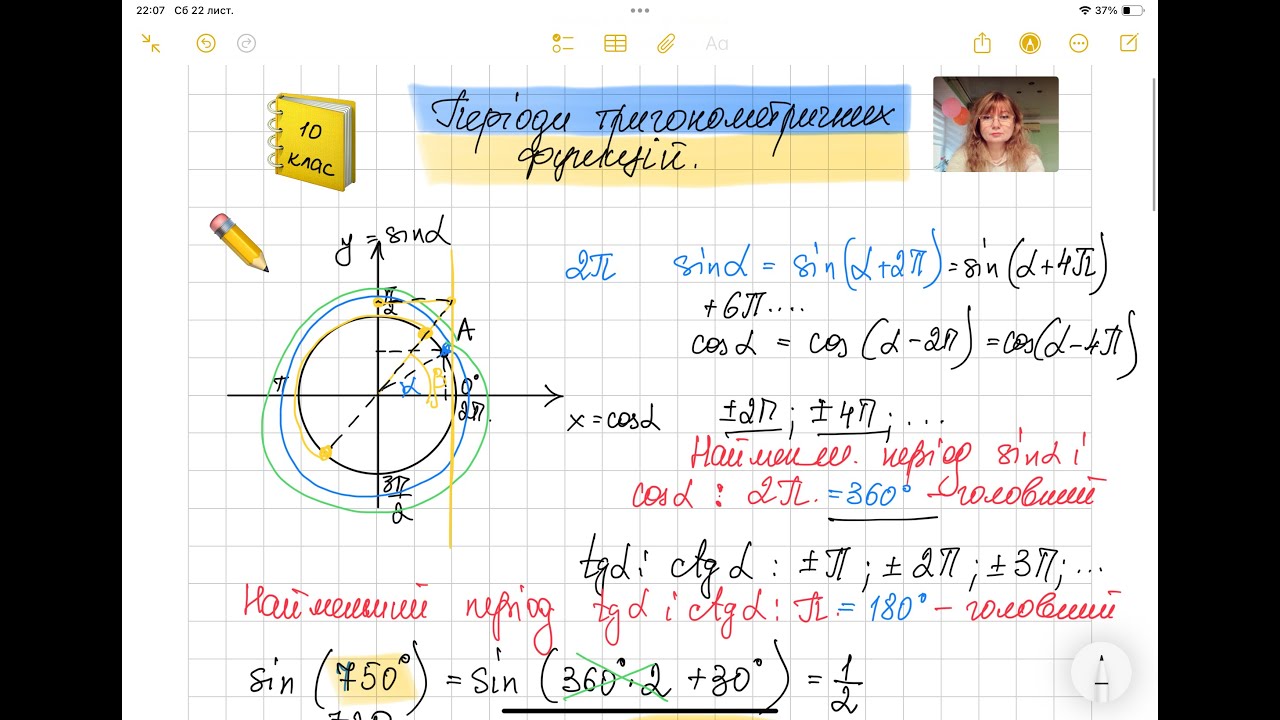 22:07 Сб 22 лист.
37%
Aa
10
клас
Періоди тригонометричних
функцій.
y = sinα
π/2
A
π
α
β
0°
2π.
3π/2
x = cosα
2π sinα = sin(α+2π) = sin(α+4π)
+6π....
cosα = cos(α-2π) = cos(α-4π)
±2π ; ±4π ; ...
Наймен ш. період sinα і
cosα : 2π. = 360° – головний
tgα і ctgα : ±π ; ±2π ; ±3π; ...
Найменший період tgα і ctgα : π. = 180° – головний
sin(750°) = sin(360°·2 + 30°) = 1/2
720